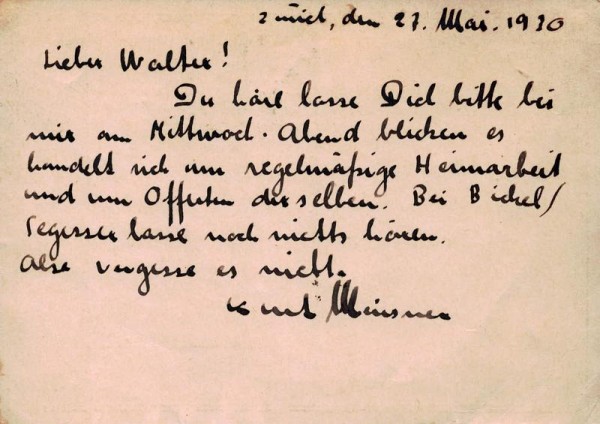 Zürich, den 27. Mai. 1930
Lieber Walter!
Du höre lasse Dich bitte bei
mir am Mittwoch-Abend blicken es
handelt sich um regelmäßige Heimarbeit
und um Offerten derselben. Bei Bickel/
Segesser lasse noch nichts hören.
Also vergesse es nicht.
Kurt Meisner